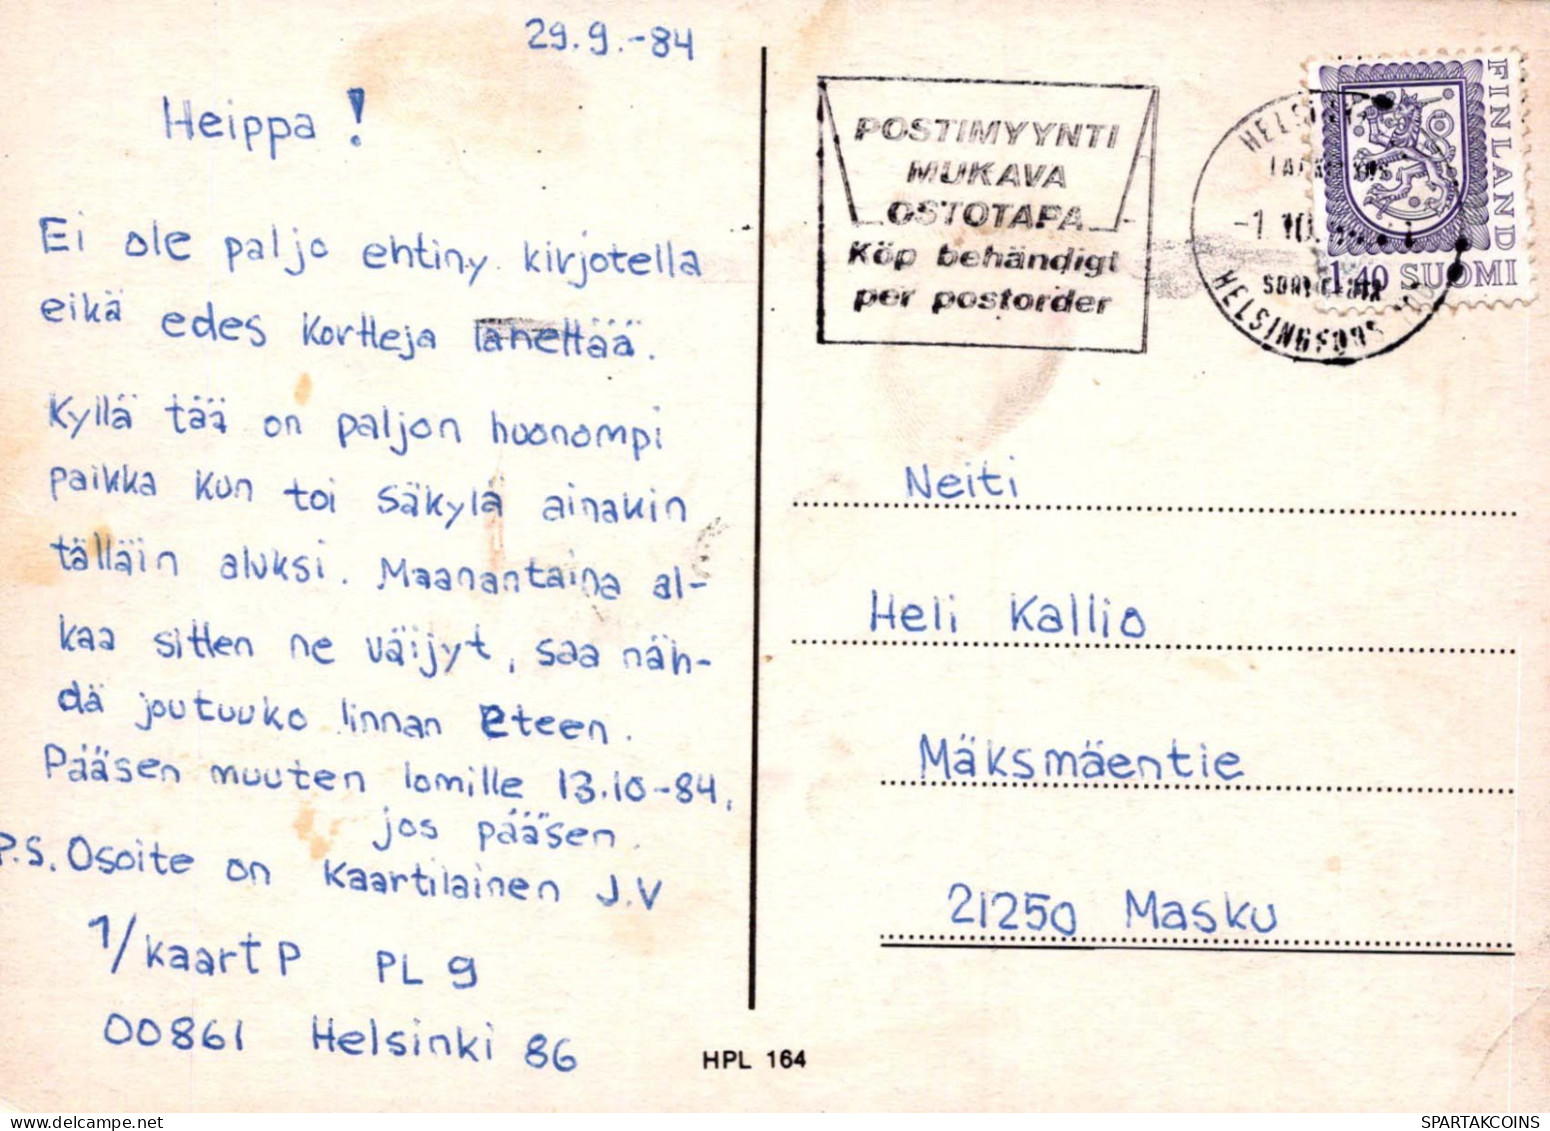 29.9.-84
Heippa!
Ei ole paljo ehtiny kirjotella
eikä edes kortteja lähettää.
Kyllä tää on paljon huonompi
paikka kun toi Säkylä ainakin
tälläin aluksi. Maanantaina al-
kaa sitten ne väijyt, saa näh-
dä joutuuko linnan eteen.
Pääsen muuten lomille 13.10-84,
jos pääsen.
P.S. Osoite on Kaartilainen J.V
1/KaartP PL 9
00861 Helsinki 86
HPL 164
POSTIMYYNTI
MUKAVA
OSTOTAPA
Köp behändigt
per postorder
HELSINKI
-1.10.
HELSINGFORS
FINLAND
1,40 SUOMI
Neiti
Heli Kallio
Mäksmäentie
21250 Masku
SPARTAKCOINS.COM